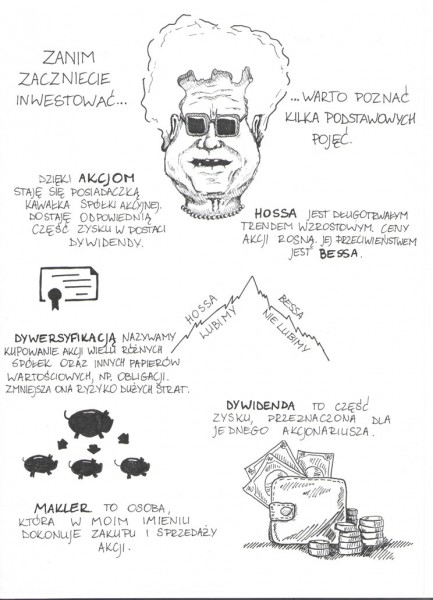 ZANIM
ZACZNIECIE
INWESTOWAĆ...
...WARTO POZNAĆ
KILKA PODSTAWOWYCH
POJĘĆ.
DZIĘKI AKCJOM
STAJĘ SIĘ POSIADACZKĄ
KAWAŁKA SPÓŁKI AKCYJNEJ.
DOSTAJĘ ODPOWIEDNIĄ
CZĘŚĆ ZYSKU W POSTACI
DYWIDENDY.
HOSSA JEST DŁUGOTRWAŁYM
TRENDEM WZROSTOWYM. CENY
AKCJI ROSNĄ. JEJ PRZECIWIEŃSTWEM
JEST BESSA.
HOSSA
LUBIMY
BESSA
NIE LUBIMY
DYWERSYFIKACJĄ NAZYWAMY
KUPOWANIE AKCJI WIELU RÓŻNYCH
SPÓŁEK ORAZ INNYCH PAPIERÓW
WARTOŚCIOWYCH, NP. OBLIGACJI.
ZMNIEJSZA ONA RYZYKO DUŻYCH STRAT.
DYWIDENDA TO CZĘŚĆ
ZYSKU, PRZEZNACZONA DLA
JEDNEGO AKCJONARIUSZA.
MAKLER TO OSOBA,
KTÓRA W MOIM IMIENIU
DOKONUJE ZAKUPU I SPRZEDAŻY
AKCJI.